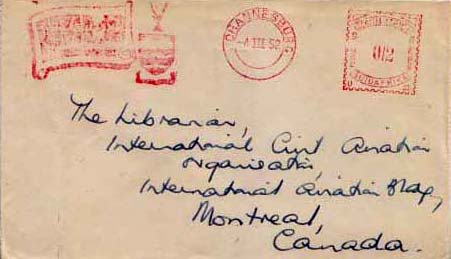 JOHANNESBURG
-4 III 52
012
SUIDAFRIKA
The Librarian,
International Civil Aviation
Organisation,
International Aviation Bldg,
Montreal,
Canada.